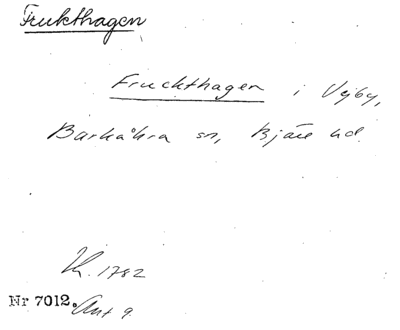 Frukthagen
Fruckthagen i Vejby,
Barkåkra sn, Bjäre hd.
Kh. 1782
Nr 7012. Ant 9.